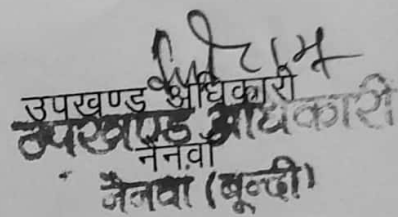 उपखण्ड अधिकारी
उपखण्ड अधिकारी
नैनवां
नैनवा (बून्दी)